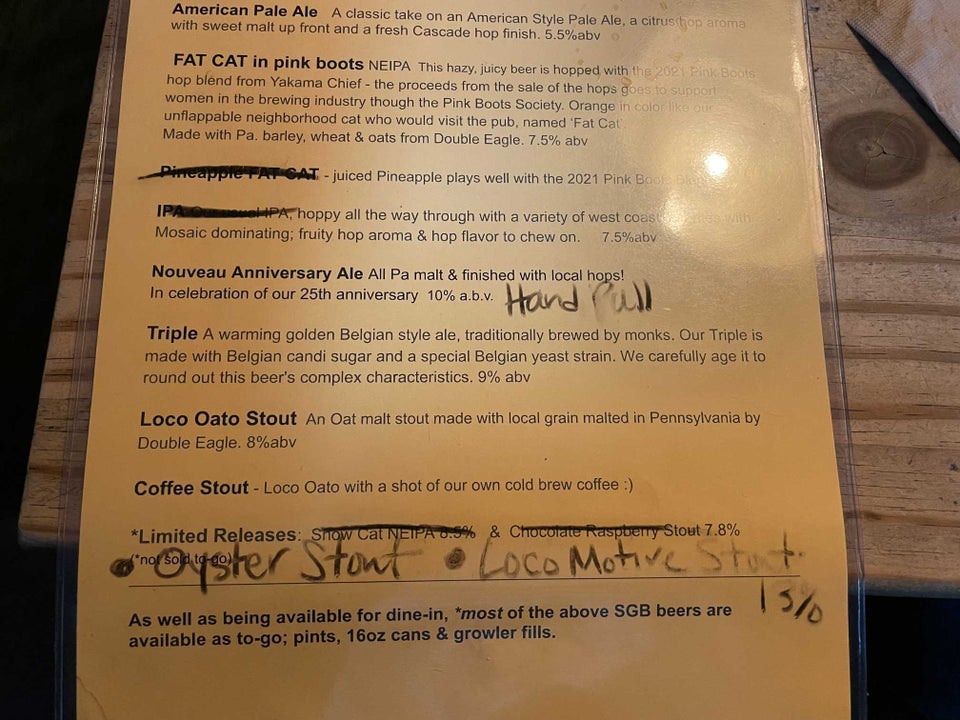 American Pale Ale A classic take on an American Style Pale Ale, a citrus hop aroma
with sweet malt up front and a fresh Cascade hop finish. 5.5%abv
FAT CAT in pink boots NEIPA This hazy, juicy beer is hopped with the 2021 Pink Boots
hop blend from Yakama Chief - the proceeds from the sale of the hops goes to support
women in the brewing industry though the Pink Boots Society. Orange in color like our
unflappable neighborhood cat who would visit the pub, named 'Fat Cat'
Made with Pa. barley, wheat & oats from Double Eagle. 7.5% abv
Pineapple FAT CAT - juiced Pineapple plays well with the 2021 Pink Boots
IPA Our usual IPA, hoppy all the way through with a variety of west coast with
Mosaic dominating; fruity hop aroma & hop flavor to chew on. 7.5%abv
Nouveau Anniversary Ale All Pa malt & finished with local hops!
In celebration of our 25th anniversary 10% a.b.v. Hand Pull
Triple A warming golden Belgian style ale, traditionally brewed by monks. Our Triple is
made with Belgian candi sugar and a special Belgian yeast strain. We carefully age it to
round out this beer's complex characteristics. 9% abv
Loco Oato Stout An Oat malt stout made with local grain malted in Pennsylvania by
Double Eagle. 8%abv
Coffee Stout - Loco Oato with a shot of our own cold brew coffee :)
*Limited Releases: Show Cat NEIPA 8.5% & Chocolate Raspberry Stout 7.8%
(*not sold to-go)
• Oyster Stout • Loco Motive Stout
13%
As well as being available for dine-in, *most of the above SGB beers are
available as to-go; pints, 16oz cans & growler fills.